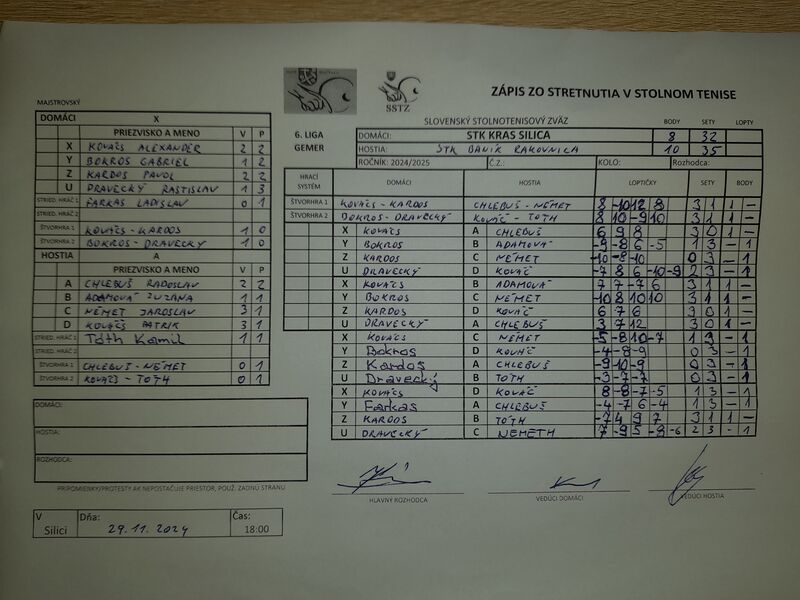 ZÁPIS ZO STRETNUTIA V STOLNOM TENISE
SSTZ
MAJSTROVSKÝ
SLOVENSKÝ STOLNOTENISOVÝ ZVÄZ BODY SETY LOPTY
6. LIGA
GEMER
DOMÁCI: STK KRAS SILICA 8 32
HOSTIA: STK BANÍK RAKOVNICA 10 35
ROČNÍK: 2024/2025 Č.Z.: KOLO: Rozhodca:
DOMÁCI X
PRIEZVISKO A MENO V P
X KOVÁCS ALEXANDER 2 2
Y BOKROS GABRIEL 1 2
Z KARDOS PAVOL 2 2
U DRAVECKÝ RASTISLAV 1 3
STRIED. HRÁČ 1 FARKAS LADISLAV 0 1
STRIED. HRÁČ 2
ŠTVORHRA 1 KOVÁCS - KARDOS 1 0
ŠTVORHRA 2 BOKROS - DRAVECKÝ 1 0
HOSTIA A
PRIEZVISKO A MENO V P
A CHLEBUŠ RADOSLAV 2 2
B ADAMOVÁ ZUZANA 1 1
C NÉMET JAROSLAV 3 1
D KOVÁČ PATRIK 3 1
STRIED. HRÁČ 1 Tóth Kamil 1 1
STRIED. HRÁČ 2
ŠTVORHRA 1 CHLEBUŠ - NÉMET 0 1
ŠTVORHRA 2 KOVÁČ - TÓTH 0 1
HRACÍ SYSTÉM DOMÁCI HOSTIA LOPTIČKY SETY BODY
ŠTVORHRA 1 KOVÁCS - KARDOS CHLEBUŠ - NÉMET 8 -10 12 8 3 1 1 -
ŠTVORHRA 2 BOKROS - DRAVECKÝ KOVÁČ - TÓTH 8 10 -9 10 3 1 1 -
X KOVÁCS A CHLEBUŠ 6 9 8 3 0 1 -
Y BOKROS B ADAMOVÁ -9 -8 6 -5 1 3 - 1
Z KARDOS C NÉMET -10 -8 -10 0 3 - 1
U DRAVECKÝ D KOVÁČ -7 8 6 -10 -9 2 3 - 1
X KOVÁCS B ADAMOVÁ 7 7 -7 6 3 1 1 -
Y BOKROS C NÉMET -10 8 10 10 3 1 1 -
Z KARDOS D KOVÁČ 6 7 6 3 0 1 -
U DRAVECKÝ A CHLEBUŠ 3 7 12 3 0 1 -
X KOVÁCS C NÉMET -5 -8 10 -7 1 3 - 1
Y Bokros D KOVÁČ -4 -8 -9 0 3 - 1
Z Kardoš A CHLEBUŠ -9 -10 -9 0 3 - 1
U Dravecký B TÓTH -3 -7 -7 0 3 - 1
X KOVÁCS D KOVÁČ 8 -8 -7 -5 1 3 - 1
Y Farkas A CHLEBUŠ -4 -7 6 -4 1 3 - 1
Z KARDOS B TÓTH -7 4 9 7 3 1 1 -
U DRAVECKÝ C NÉMETH 7 -9 5 -8 -6 2 3 - 1
DOMÁCI:
HOSTIA:
ROZHODCA:
PRIPOMIENKY/PROTESTY AK NEPOSTAČUJE PRIESTOR, POUŽ. ZADNÚ STRANU
HLAVNÝ ROZHODCA VEDÚCI DOMÁCI VEDÚCI HOSTIA
V Silici Dňa: 29.11.2024 Čas: 18:00